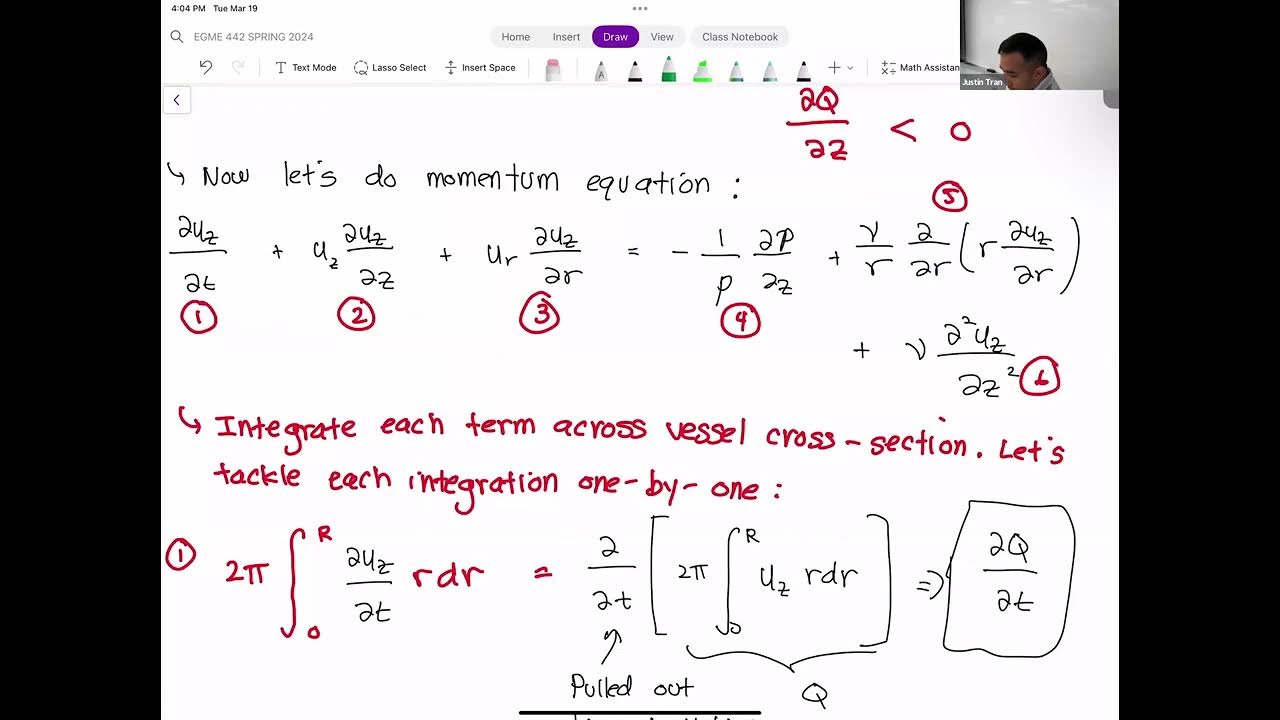 4:04 PM Tue Mar 19
EGME 442 SPRING 2024
Home Insert Draw View Class Notebook
Text Mode Lasso Select Insert Space Math Assistan
Justin Tran
∂Q/∂z < 0
↳ Now let's do momentum equation :
∂u_z/∂t + u_z ∂u_z/∂z + u_r ∂u_z/∂r = - 1/ρ ∂P/∂z + ν/r ∂/∂r (r ∂u_z/∂r) ⑤
① ② ③ ④
+ ν ∂²u_z/∂z² ⑥
↳ Integrate each term across vessel cross-section. Let's
tackle each integration one-by-one :
① 2π ∫₀^R ∂u_z/∂t rdr = ∂/∂t [2π ∫₀^R u_z rdr] => ∂Q/∂t
Pulled out Q